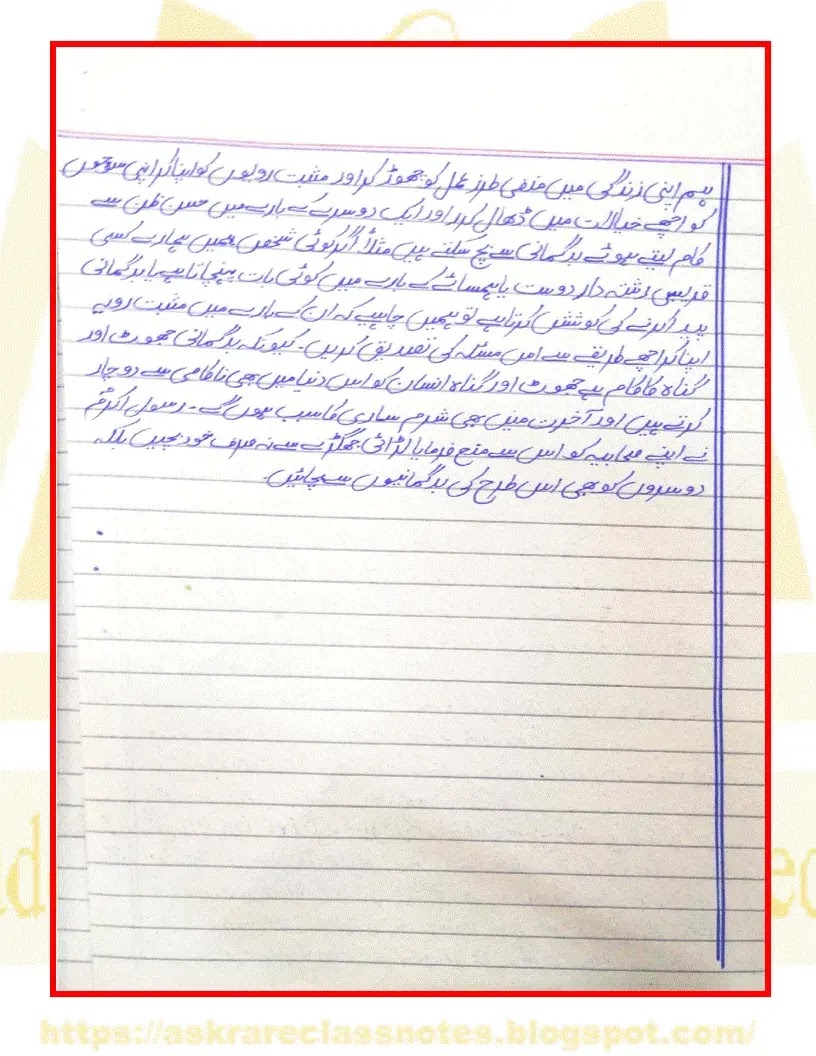 ہم اپنی زندگی میں منفی طرز عمل کو چھوڑ کر اور مثبت رویوں کو اپنا کر اپنی سوچوں
کو اچھے خیالات میں ڈھال کر اور ایک دوسرے کے بارے میں حسن ظن سے
کام لیتے ہوئے بدگمانی سے بچ سکتے ہیں مثلاً اگر کوئی شخص ہمیں ہمارے کسی
قریبی رشتہ دار دوست یا ہمسائے کے بارے میں کوئی بات پہنچاتا ہے یا بدگمانی
پیدا کرنے کی کوشش کرتا ہے تو ہمیں چاہیے کہ ان کے بارے میں مثبت رویہ
اپنا کر اچھے طریقے سے اس مسئلہ کی تصدیق کریں۔ کیونکہ بدگمانی جھوٹ اور
گناہ کا کام ہے جھوٹ اور گناہ انسان کو اس دنیا میں بھی ناکامی سے دوچار
کرتے ہیں اور آخرت میں بھی شرم ساری کا سبب ہوں گے۔ رسول اکرمؐ
نے اپنے صحابہ کو اس سے منع فرمایا لڑائی جھگڑے سے نہ صرف خود بچیں بلکہ
دوسروں کو بھی اس طرح کی بدگمانیوں سے بچائیں۔
https://askrareclassnotes.blogspot.com/